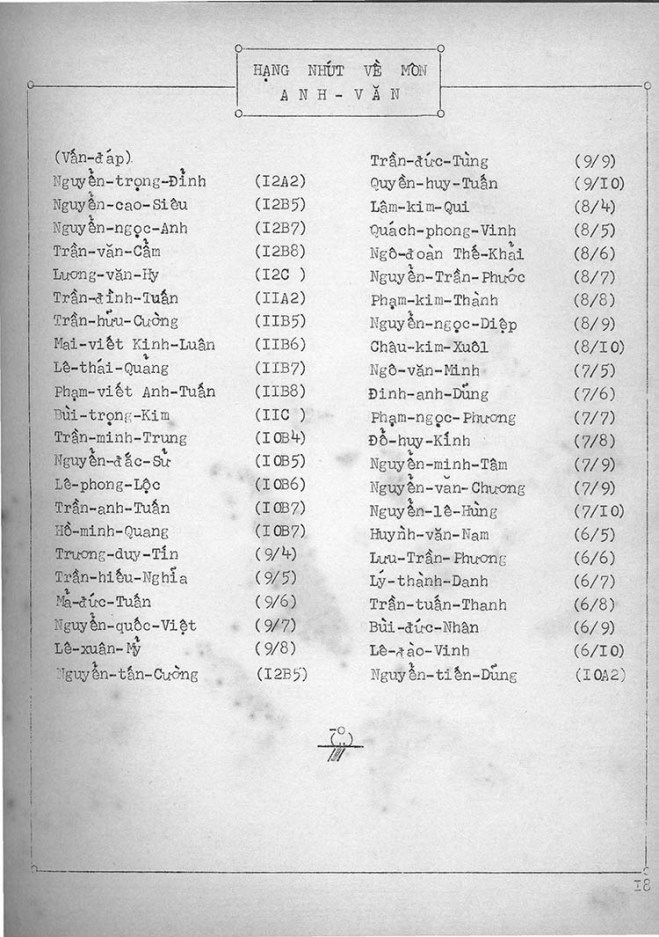 HẠNG NHỨT VỀ MÔN
ANH-VĂN
(Vấn-đáp).
Nguyễn-trọng-Đỉnh (I2A2)
Nguyễn-cao-Siêu (I2B5)
Nguyễn-ngọc-Anh (I2B7)
Trần-văn-Cẩm (I2B8)
Lương-văn-Hy (I2C )
Trần-đình-Tuấn (IIA2)
Trần-hữu-Cường (IIB5)
Mai-viết Kinh-Luân (IIB6)
Lê-thái-Quảng (IIB7)
Phạm-viết Anh-Tuấn (IIB8)
Bùi-trọng-Kim (IIC )
Trần-minh-Trung (I0B4)
Nguyễn-đắc-Sử (I0B5)
Lê-phong-Lộc (I0B6)
Trần-anh-Tuấn (I0B7)
Hồ-minh-Quang (I0B7)
Trương-duy-Tín (9/4)
Trần-hiếu-Nghĩa (9/5)
Mã-đức-Tuấn (9/6)
Nguyễn-quốc-Việt (9/7)
Lê-xuân-Mỹ (9/8)
Nguyễn-tấn-Cường (I2B5)
Trần-đức-Tùng (9/9)
Quyền-huy-Tuấn (9/I0)
Lâm-kim-Qui (8/4)
Quách-phong-Vinh (8/5)
Ngô-đoàn Thế-Khải (8/6)
Nguyễn-Trần-Phước (8/7)
Phạm-kim-Thành (8/8)
Nguyễn-ngọc-Diệp (8/9)
Châu-kim-Xuôl (8/I0)
Ngô-văn-Minh (7/5)
Đinh-anh-Dũng (7/6)
Phạm-ngọc-Phương (7/7)
Đỗ-huy-Kính (7/8)
Nguyễn-minh-Tâm (7/9)
Nguyễn-văn-Chương (7/9)
Nguyễn-lê-Hùng (7/I0)
Huỳnh-văn-Nam (6/5)
Lưu-Trần-Phương (6/6)
Lý-thành-Danh (6/7)
Trần-tuấn-Thanh (6/8)
Bùi-đức-Nhân (6/9)
Lê-đào-Vinh (6/I0)
Nguyễn-tiến-Dũng (I0A2)
I8